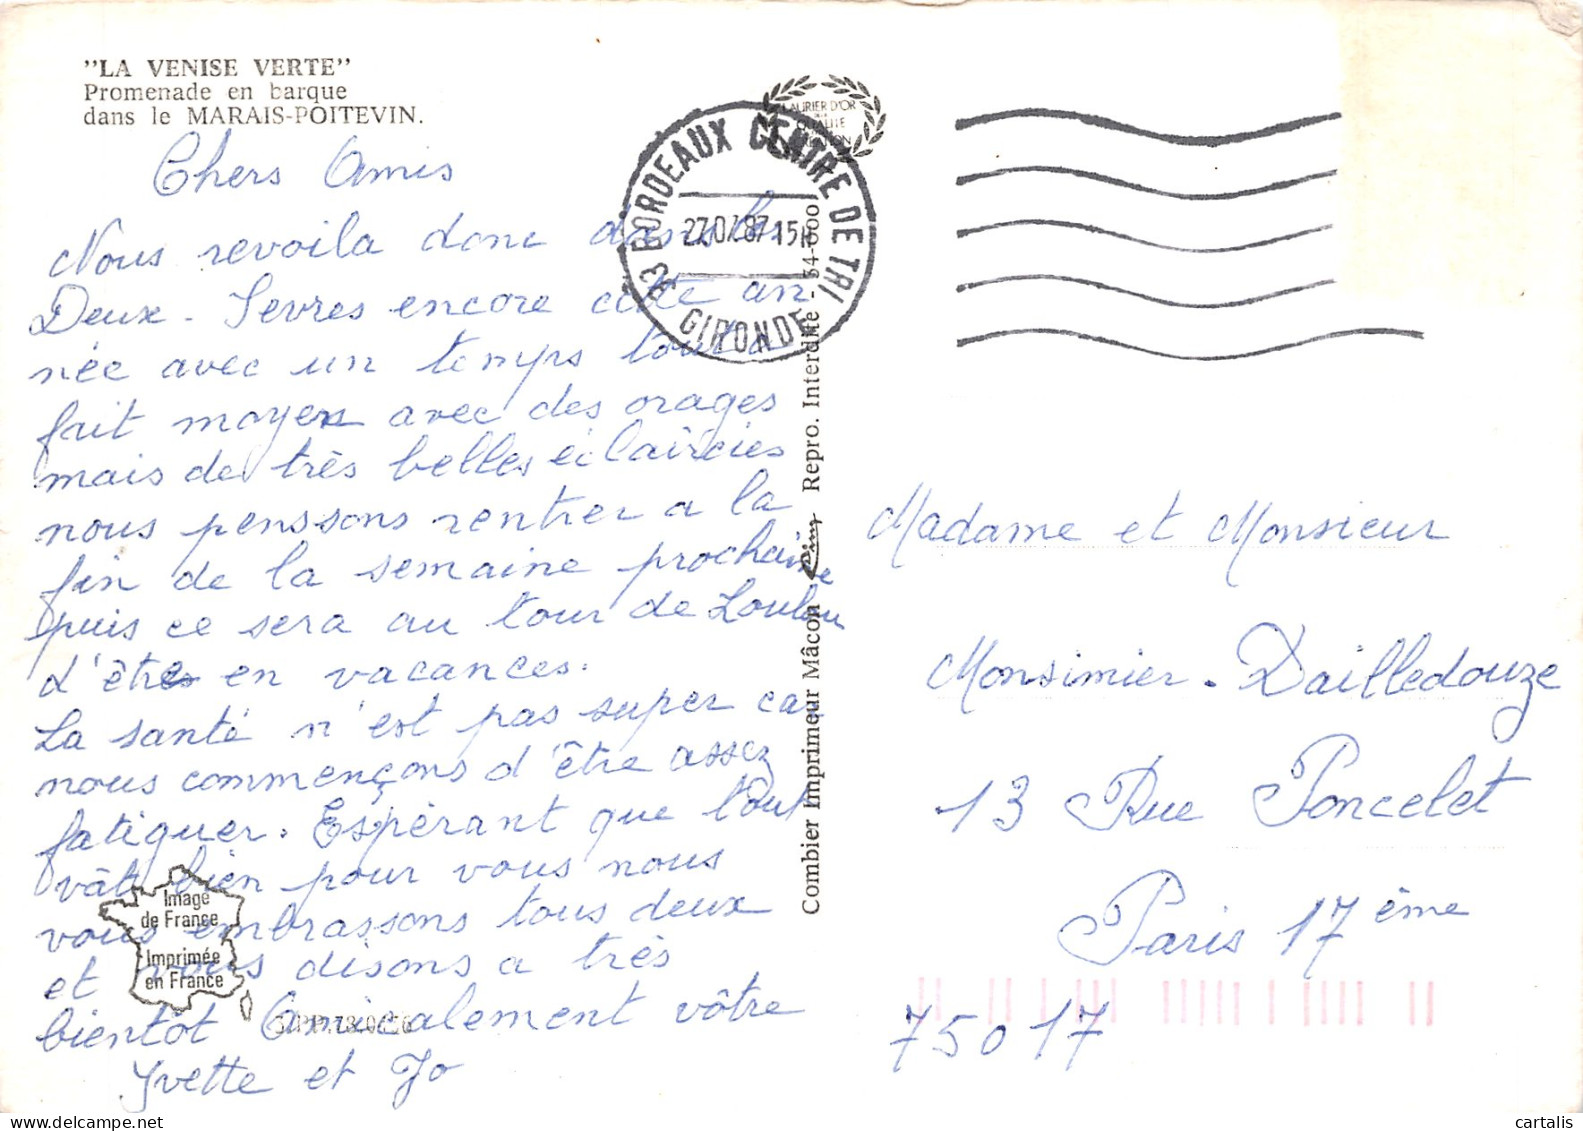 "LA VENISE VERTE"
Promenade en barque
dans le MARAIS-POITEVIN.
Chers Amis
Nous revoila donc dans les
Deux-Sevres encore cette an
née avec un temps tout a
fait moyen avec des orages
mais de très belles éclaircies
nous penssons rentrer a la
fin de la semaine prochaine
puis ce sera au tour de Loulou
d'être en vacances.
La santé n'est pas super car
nous commençons d'être assez
fatiguer. Espérant que tout
vât bien pour vous nous
vous embrassons tous deux
et vous disons a très
bientôt Amicalement vôtre
Yvette et Jo
Image
de France
Imprimée
en France
LAURIER D'OR
QUALITE
33 BORDEAUX CENTRE DE TRI
27.07.87 15H
GIRONDE
Combier Imprimeur Mâcon Cim Repro. Interdite - 34-600
Madame et Monsieur
Monsimier - Dailledouze
13 Rue Poncelet
Paris 17 ème
75017
cartalis